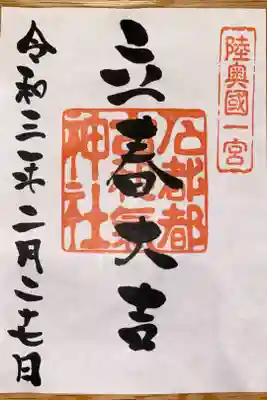 陸奥國一宮
立春大吉
石都都
古和氣
神社
令和三年二月二十七日